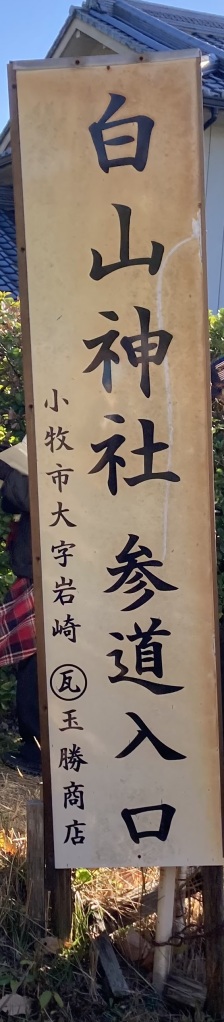 白山神社 参道入口
小牧市大字岩崎 瓦 玉勝商店